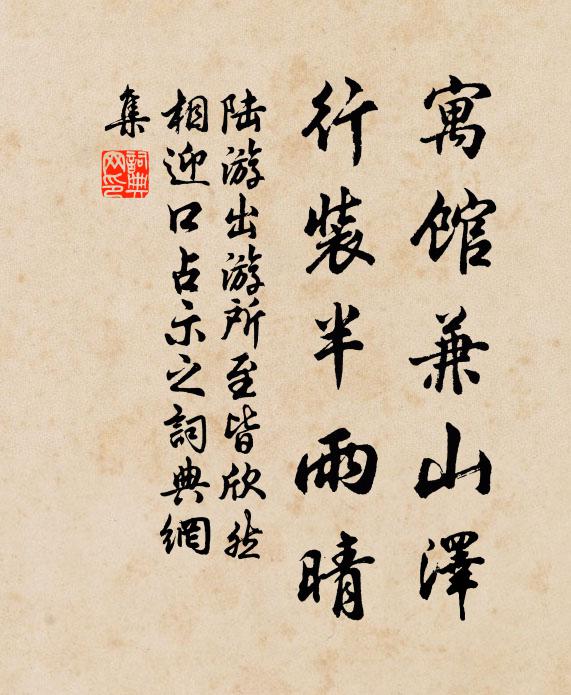 寓館兼山澤
行裝半雨晴
陆游出游所至皆欣然
相迎口占示之詞典網
集
詞典
网印